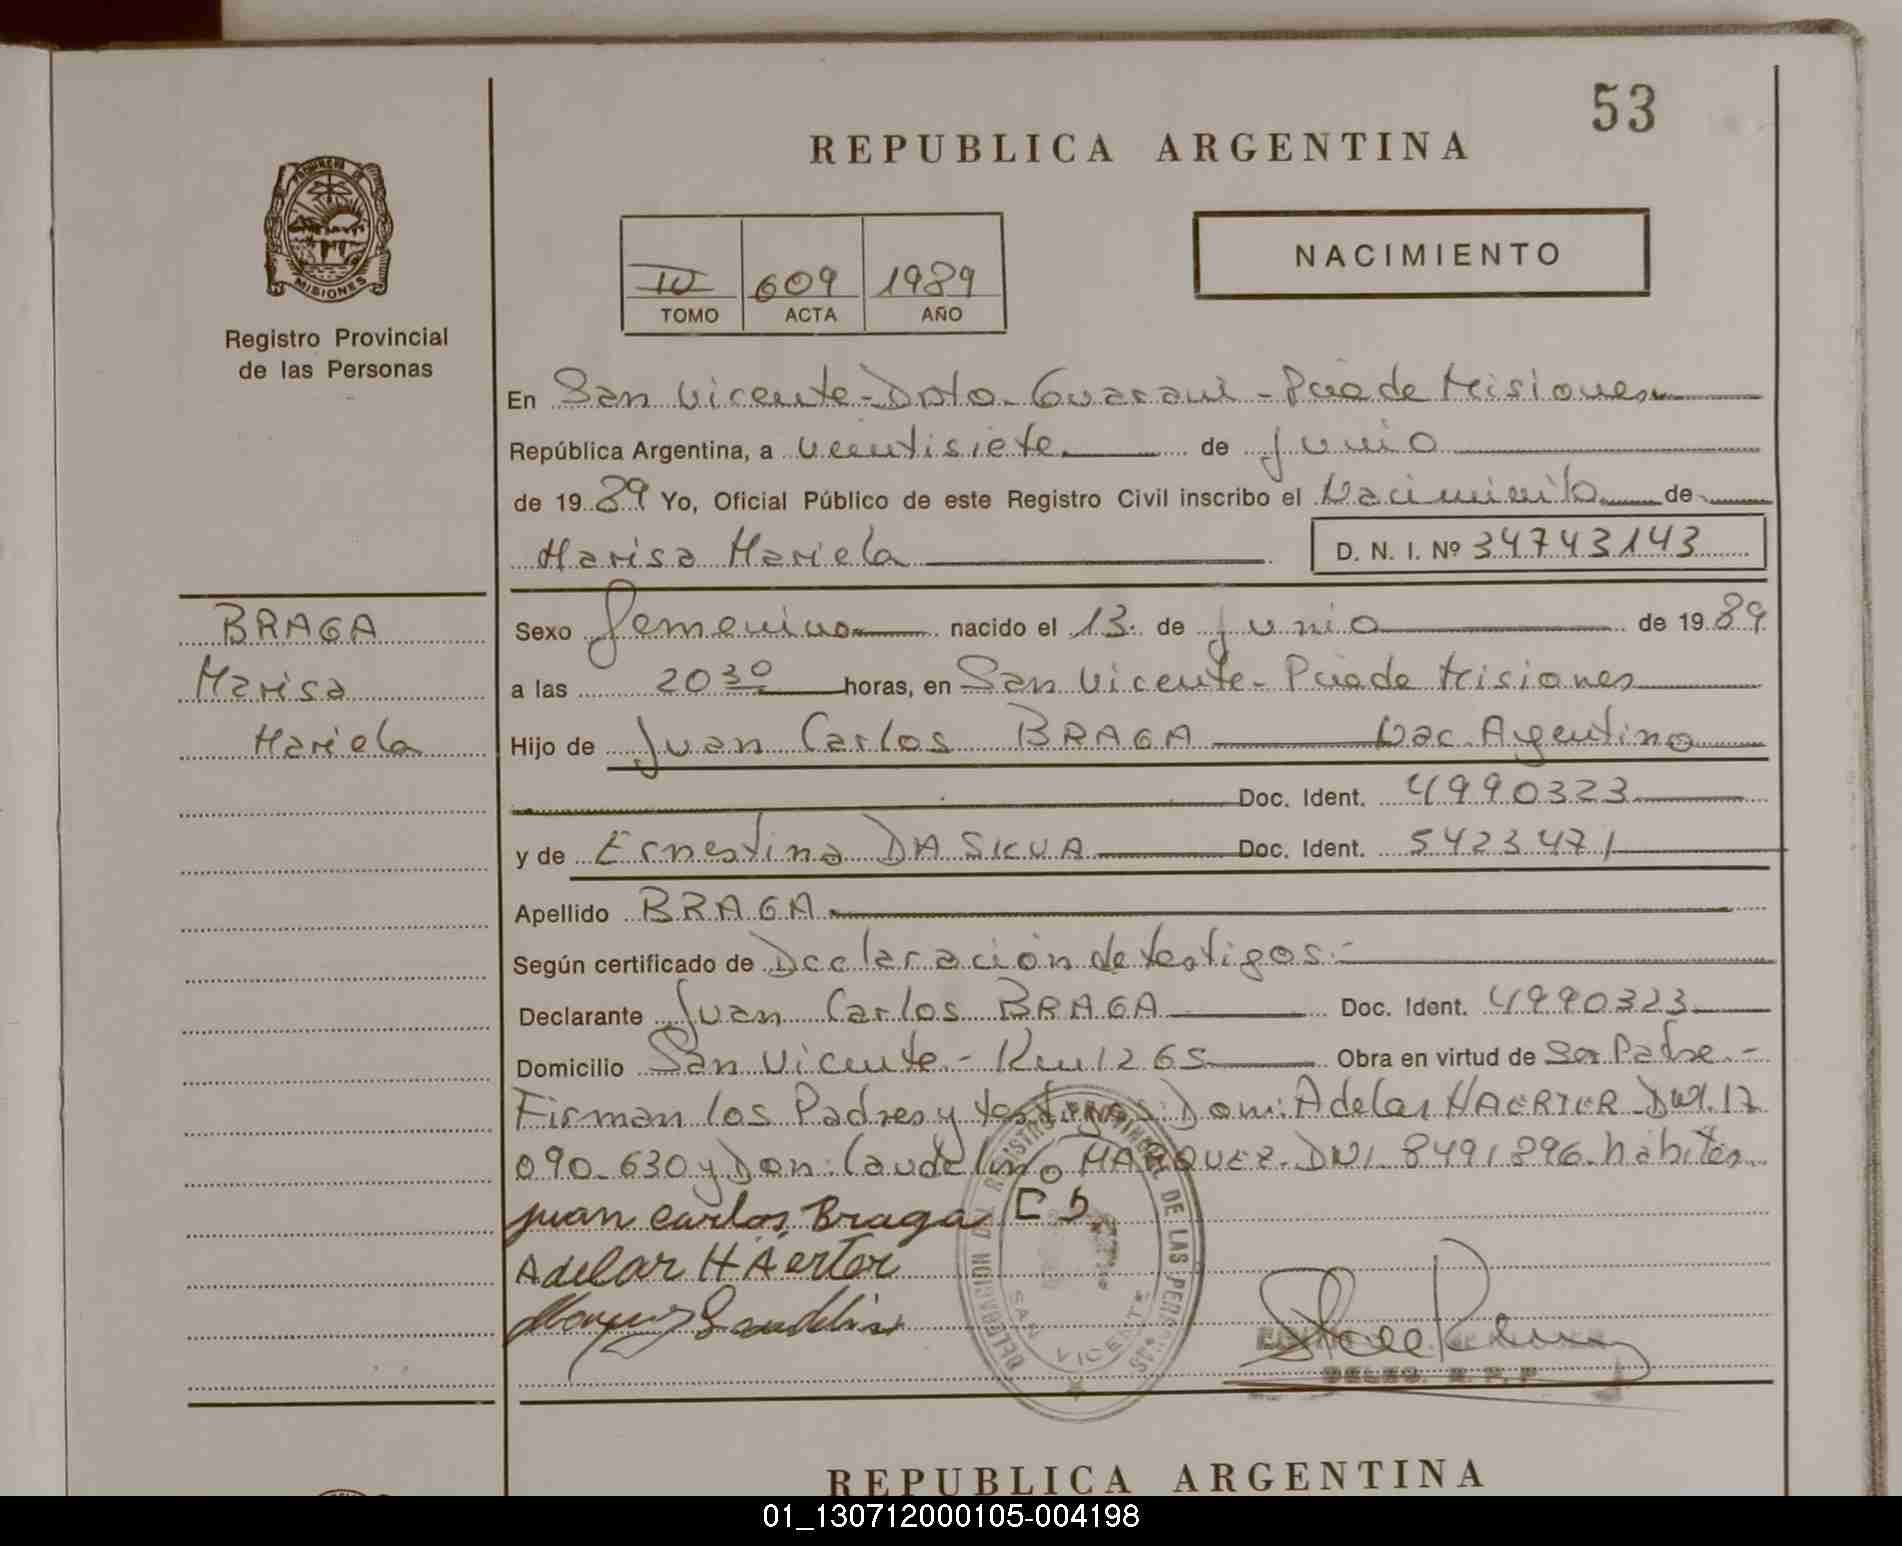 53
REPUBLICA ARGENTINA
PROVINCIA DE
MISIONES
Registro Provincial
de las Personas
NACIMIENTO
IV 609 1989
TOMO ACTA AÑO
En San Vicente - Dpto. Guarani - Pcia de Misiones
República Argentina, a veintisiete de junio
de 1989 Yo, Oficial Público de este Registro Civil inscribo el Nacimiento de
Marisa Mariela D. N. I. Nº 34743143
BRAGA
Marisa
Mariela
Sexo femenino nacido el 13 de junio de 1989
a las 20 30 horas, en San Vicente - Pcia de Misiones
Hijo de Juan Carlos BRAGA Nac. Argentino
Doc. Ident. 4990323
y de Ernestina DA SILVA Doc. Ident. 5423471
Apellido BRAGA
Según certificado de Declaración de testigos.-
Declarante Juan Carlos BRAGA Doc. Ident. 4990323
Domicilio San Vicente - Km 1265 Obra en virtud de Ser Padre.-
Firman los Padres y testigos: Don: Adelar HAERTER DNI. 17
090.630 y Don: Caudelino MARQUEZ. DNI. 8491896. hábiles
Juan Carlos Braga E D.
Adelar HAerter
DELEGACION DEL REGISTRO PROVINCIAL DE LAS PERSONAS
SAN VICENTE
DELEG. R. P. P.
REPUBLICA ARGENTINA
01_130712000105-004198